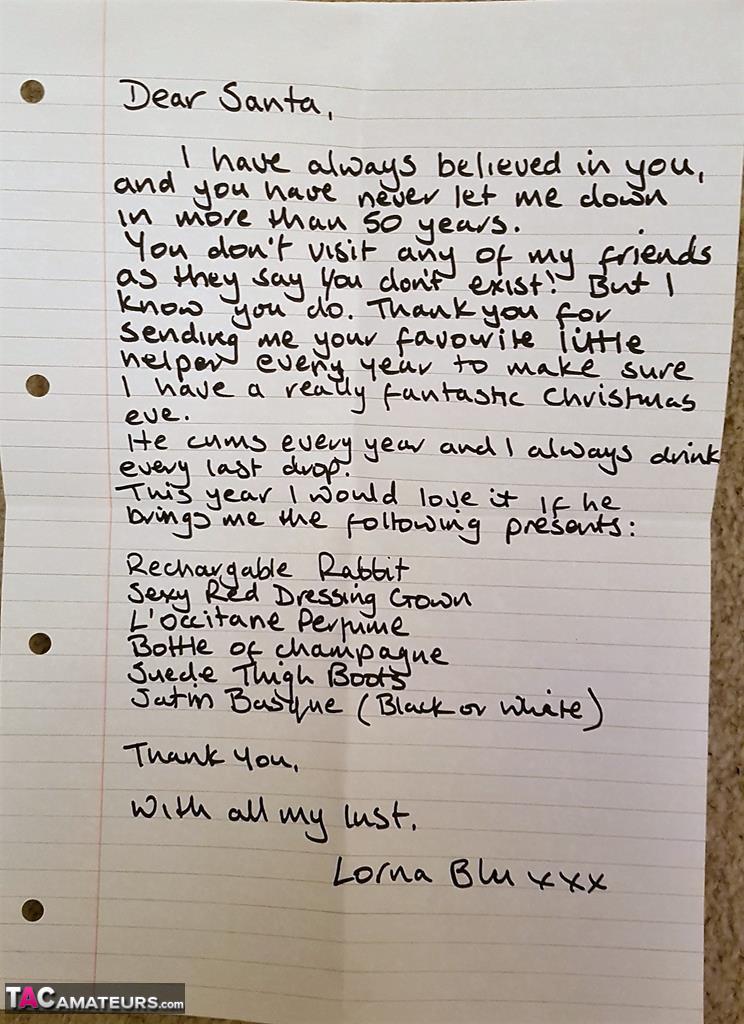 Dear Santa,
I have always believed in you,
and you have never let me down
in more than 50 years.
You don't visit any of my friends
as they say you don't exist! But I
know you do. Thank you for
sending me your favourite little
helper every year to make sure
I have a really fantastic Christmas
eve.
He cums every year and I always drink
every last drop.
This year I would love it if he
brings me the following presents:
Rechargable Rabbit
Sexy Red Dressing Gown
L'Occitane Perfume
Bottle of champagne
Suede Thigh Boots
Satin Basque (Black or White)
Thank You,
With all my lust,
Lorna Blu xxx
TACAMATEURS.com